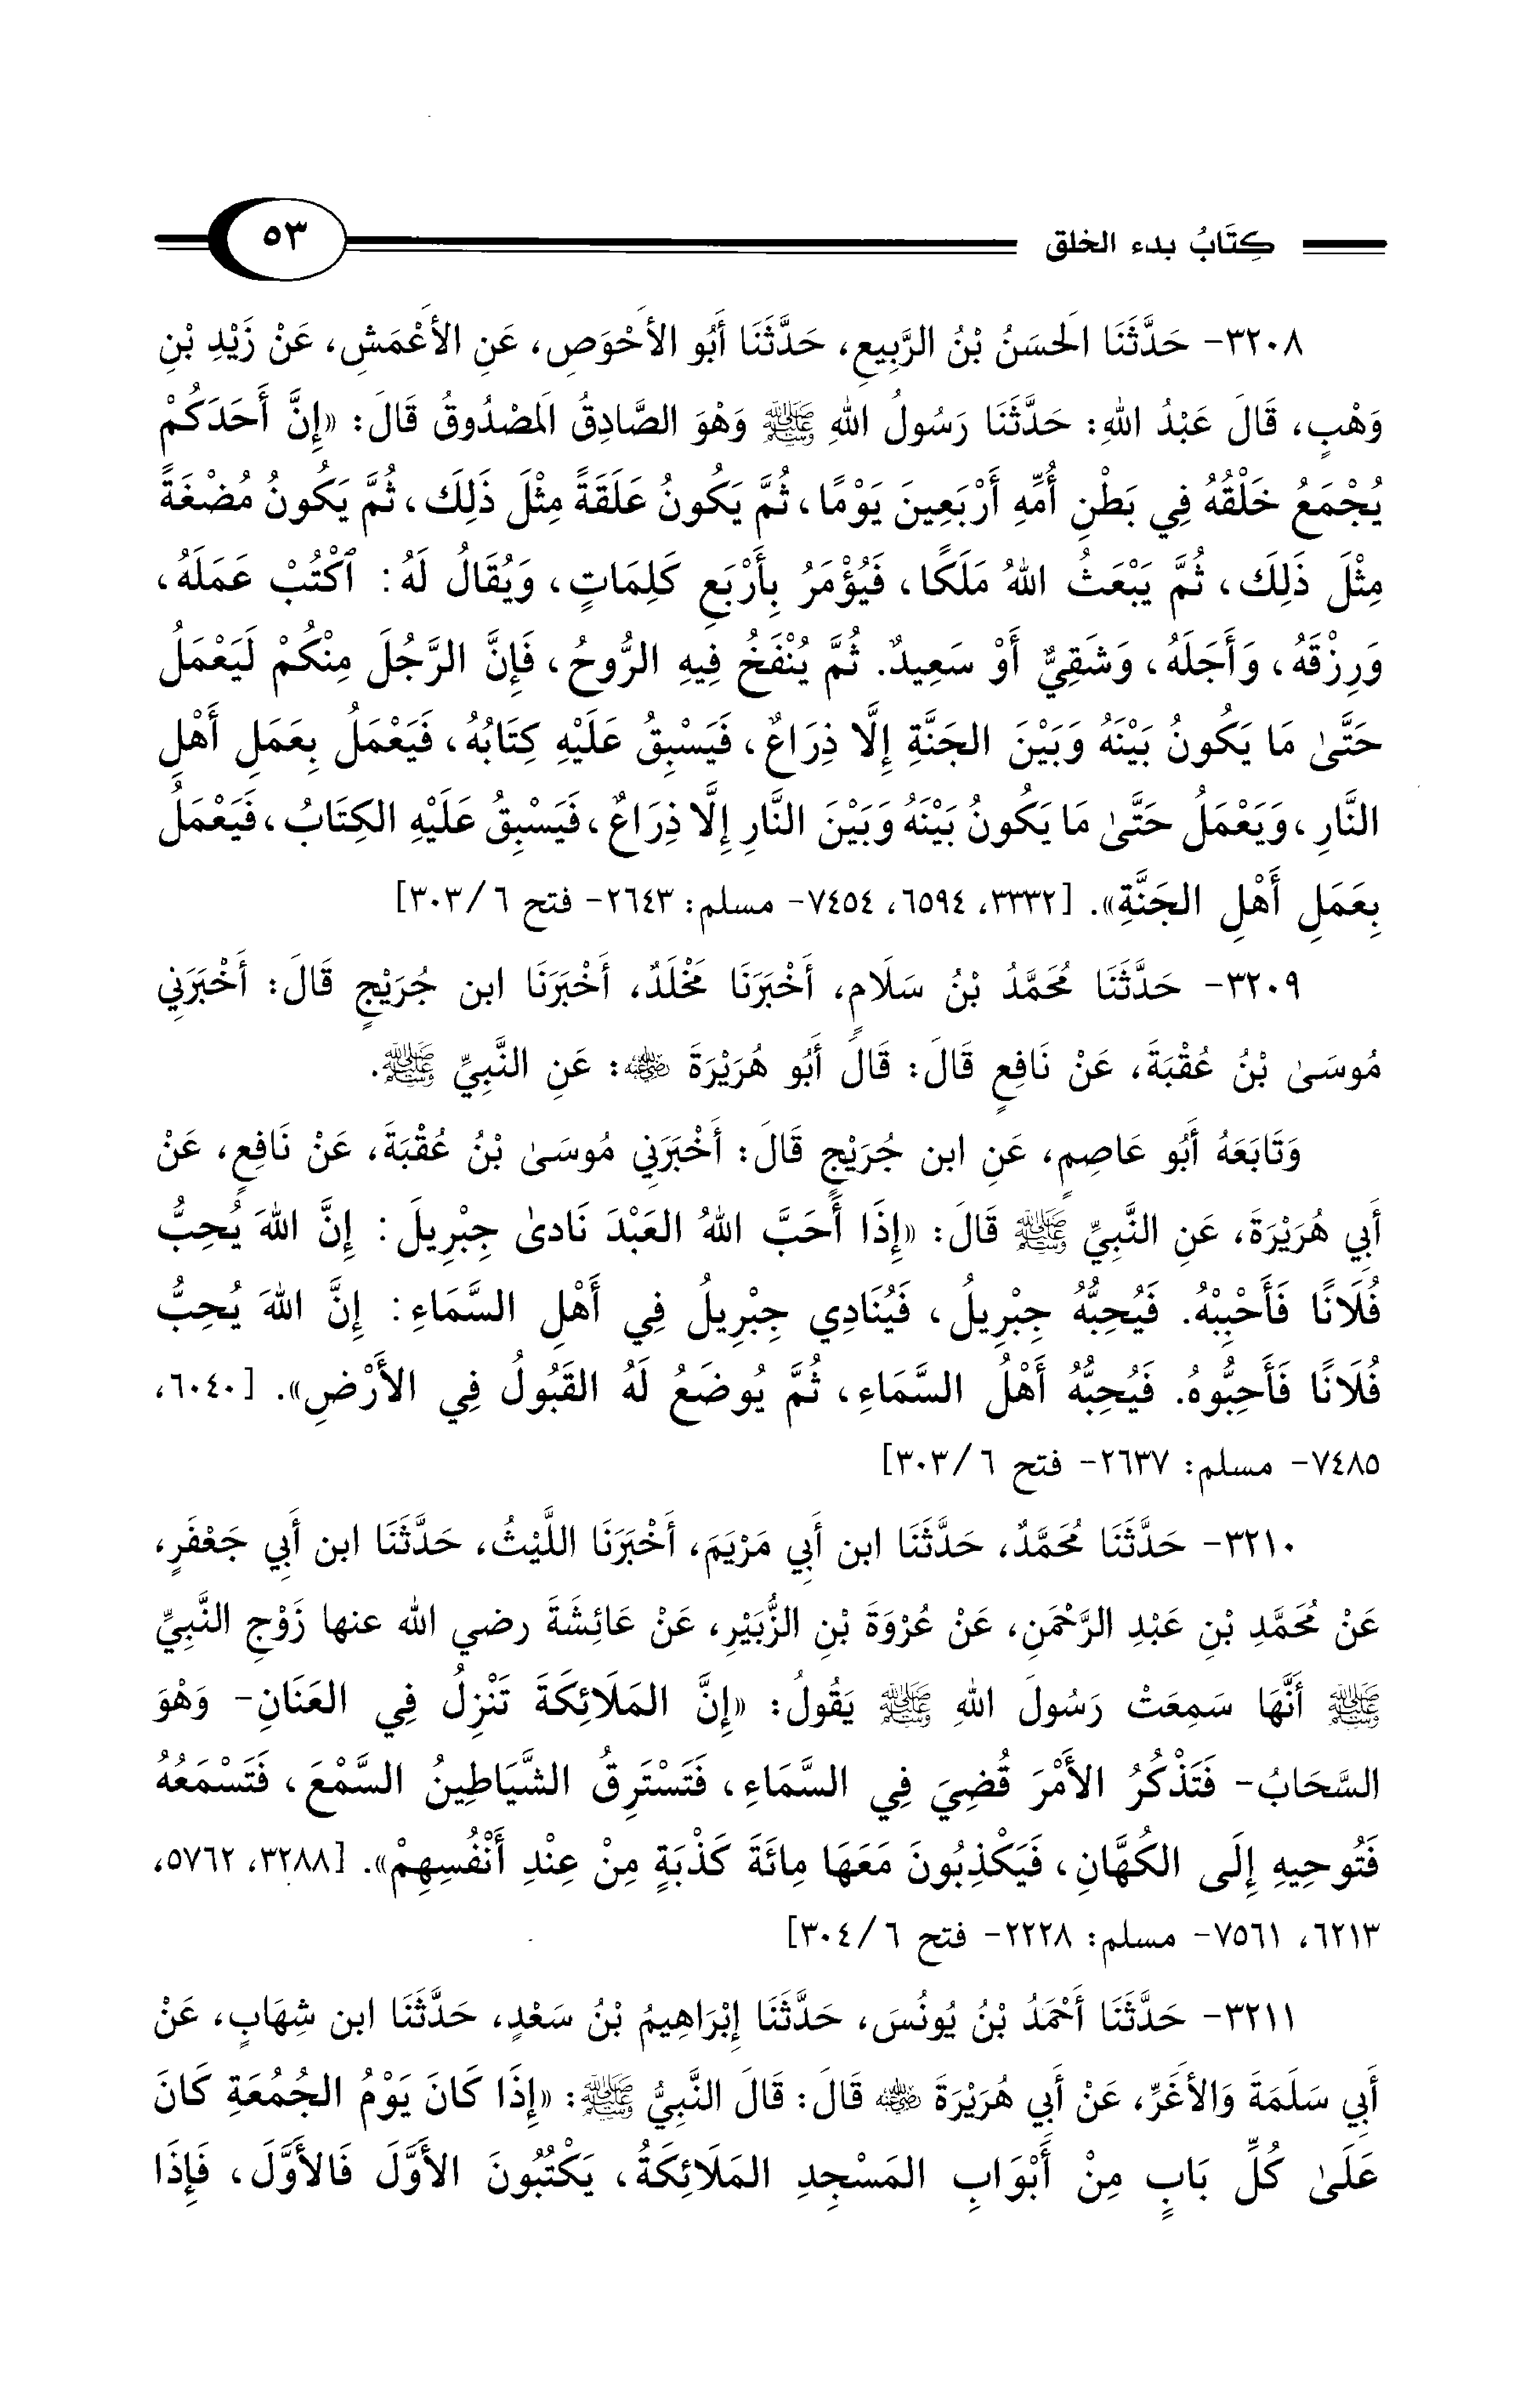 كِتَابُ بدء الخلق ٥٣
٣٢٠٨- حَدَّثَنَا الَحسَنُ بْنُ الرَّبِيعِ، حَدَّثَنَا أَبُو الأَحْوَصِ، عَنِ الأَعْمَشِ، عَنْ زَيْدِ بْنِ
وَهْبٍ، قَالَ عَبْدُ اللهِ: حَدَّثَنَا رَسُولُ اللهِ ﷺ وَهْوَ الصَّادِقُ الَمصْدُوقُ قَالَ: «إِنَّ أَحَدَكُمْ
يُجْمَعُ خَلْقُهُ فِي بَطْنِ أُمِّهِ أَرْبَعِينَ يَوْمًا، ثُمَّ يَكُونُ عَلَقَةً مِثْلَ ذَلِكَ، ثُمَّ يَكُونُ مُضْغَةً
مِثْلَ ذَلِكَ، ثُمَّ يَبْعَثُ اللهُ مَلَكًا، فَيُؤْمَرُ بِأَرْبَعِ كَلِمَاتٍ، وَيُقَالُ لَهُ: ٱكْتُبْ عَمَلَهُ،
وَرِزْقَهُ، وَأَجَلَهُ، وَشَقِيٌّ أَوْ سَعِيدٌ. ثُمَّ يُنْفَخُ فِيهِ الرُّوحُ، فَإِنَّ الرَّجُلَ مِنْكُمْ لَيَعْمَلُ
حَتَّىٰ مَا يَكُونُ بَيْنَهُ وَبَيْنَ الجَنَّةِ إِلَّا ذِرَاعٌ، فَيَسْبِقُ عَلَيْهِ كِتَابُهُ، فَيَعْمَلُ بِعَمَلِ أَهْلِ
النَّارِ، وَيَعْمَلُ حَتَّىٰ مَا يَكُونُ بَيْنَهُ وَبَيْنَ النَّارِ إِلَّا ذِرَاعٌ، فَيَسْبِقُ عَلَيْهِ الكِتَابُ، فَيَعْمَلُ
بِعَمَلِ أَهْلِ الجَنَّةِ». [٣٣٣٢، ٦٥٩٤، ٧٤٥٤- مسلم: ٢٦٤٣- فتح ٦/ ٣٠٣]
٣٢٠٩- حَدَّثَنَا مُحَمَّدُ بْنُ سَلَامٍ، أَخْبَرَنَا مَخْلَدٌ، أَخْبَرَنَا ابن جُرَيْجٍ قَالَ: أَخْبَرَنِي
مُوسَىٰ بْنُ عُقْبَةَ، عَنْ نَافِعٍ قَالَ: قَالَ أَبُو هُرَيْرَةَ رضي الله عنه: عَنِ النَّبِيِّ ﷺ.
وَتَابَعَهُ أَبُو عَاصِمٍ، عَنِ ابن جُرَيْجٍ قَالَ: أَخْبَرَنِي مُوسَىٰ بْنُ عُقْبَةَ، عَنْ نَافِعٍ، عَنْ
أَبِي هُرَيْرَةَ، عَنِ النَّبِيِّ ﷺ قَالَ: «إِذَا أَحَبَّ اللهُ العَبْدَ نَادىٰ جِبْرِيلَ: إِنَّ اللهَ يُحِبُّ
فُلَانًا فَأَحْبِبْهُ. فَيُحِبُّهُ جِبْرِيلُ، فَيُنَادِي جِبْرِيلُ فِي أَهْلِ السَّمَاءِ: إِنَّ اللهَ يُحِبُّ
فُلَانًا فَأَحِبُّوهُ. فَيُحِبُّهُ أَهْلُ السَّمَاءِ، ثُمَّ يُوضَعُ لَهُ القَبُولُ فِي الأَرْضِ». [٦٠٤٠،
٧٤٨٥- مسلم: ٢٦٣٧- فتح ٦/ ٣٠٣]
٣٢١٠- حَدَّثَنَا مُحَمَّدٌ، حَدَّثَنَا ابن أَبِي مَرْيَمَ، أَخْبَرَنَا اللَّيْثُ، حَدَّثَنَا ابن أَبِي جَعْفَرٍ،
عَنْ مُحَمَّدِ بْنِ عَبْدِ الرَّحْمَنِ، عَنْ عُرْوَةَ بْنِ الزُّبَيْرِ، عَنْ عَائِشَةَ رضي الله عنها زَوْجِ النَّبِيِّ
ﷺ أَنَّهَا سَمِعَتْ رَسُولَ اللهِ ﷺ يَقُولُ: «إِنَّ المَلَائِكَةَ تَنْزِلُ فِي العَنَانِ- وَهْوَ
السَّحَابُ- فَتَذْكُرُ الأَمْرَ قُضِيَ فِي السَّمَاءِ، فَتَسْتَرِقُ الشَّيَاطِينُ السَّمْعَ، فَتَسْمَعُهُ
فَتُوحِيهِ إِلَى الكُهَّانِ، فَيَكْذِبُونَ مَعَهَا مِائَةَ كَذْبَةٍ مِنْ عِنْدِ أَنْفُسِهِمْ». [٣٢٨٨، ٥٧٦٢،
٦٢١٣، ٧٥٦١- مسلم: ٢٢٢٨- فتح ٦/ ٣٠٤]
٣٢١١- حَدَّثَنَا أَحْمَدُ بْنُ يُونُسَ، حَدَّثَنَا إِبْرَاهِيمُ بْنُ سَعْدٍ، حَدَّثَنَا ابن شِهَابٍ، عَنْ
أَبِي سَلَمَةَ وَالأَغَرِّ، عَنْ أَبِي هُرَيْرَةَ رضي الله عنه قَالَ: قَالَ النَّبِيُّ ﷺ: «إِذَا كَانَ يَوْمُ الجُمُعَةِ كَانَ
عَلَىٰ كُلِّ بَابٍ مِنْ أَبْوَابِ المَسْجِدِ المَلَائِكَةُ، يَكْتُبُونَ الأَوَّلَ فَالأَوَّلَ، فَإِذَا